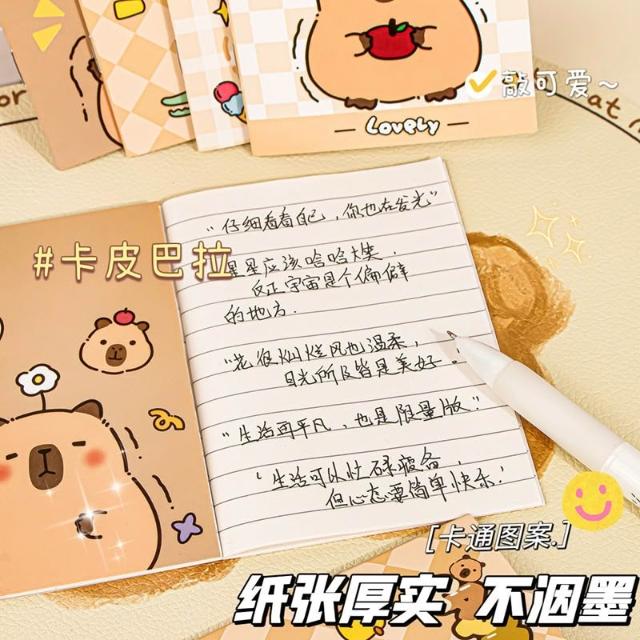 敲可爱~
Lovely
"仔细看看自己,你也在发光"
#卡皮巴拉
星星应该哈哈大笑.
反正宇宙是个偏僻
的地方.
"花很灿烂风也温柔,
目光所及皆是美好."
"生活再平凡,也是限量版."
'生活可以忙碌疲惫,
但心态要简单快乐.'
[卡通图案.]
纸张厚实 不洇墨